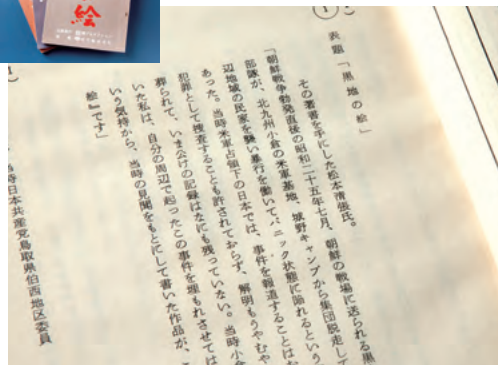 絵
①
表題「黒地の絵」
その著書を手にした松本清張氏。
「朝鮮戦争勃発直後の昭和二十五年七月、朝鮮の戦場に送られる黒
部隊が、北九州小倉の米軍基地、城野キャンプから集団脱走して
辺地域の民家を襲い暴行を働いてパニック状態に陥れるという
あった。当時米軍占領下の日本では、事件を報道することは
犯罪として捜査することも許されておらず、解明もうやむや
葬られて、いま公けの記録はなにも残っていない。当時小
いた私は、自分の周辺で起ったこの事件を埋もれさせては
いう気持から、当時の見聞をもとにして書いた作品が、
絵』です」
時日本共産党鳥取県伯西地区委員